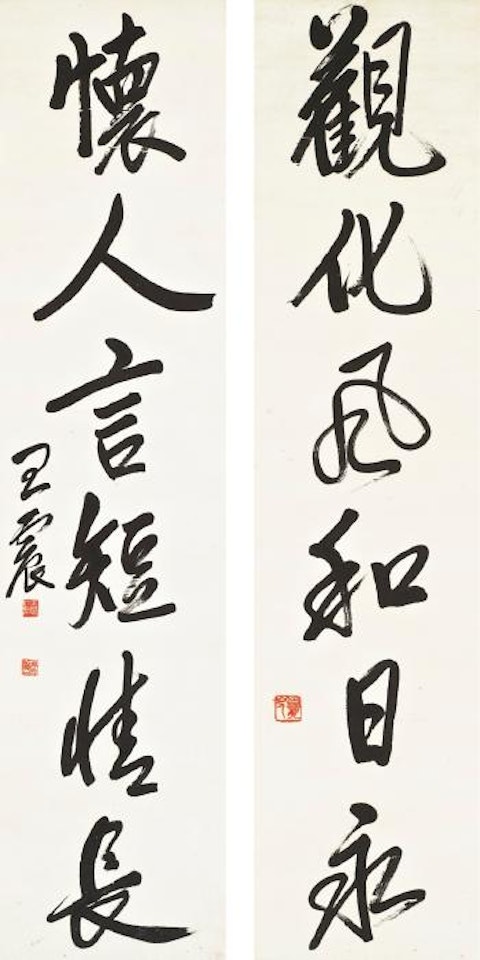 觀化風和日永
懷人言短情長
王震